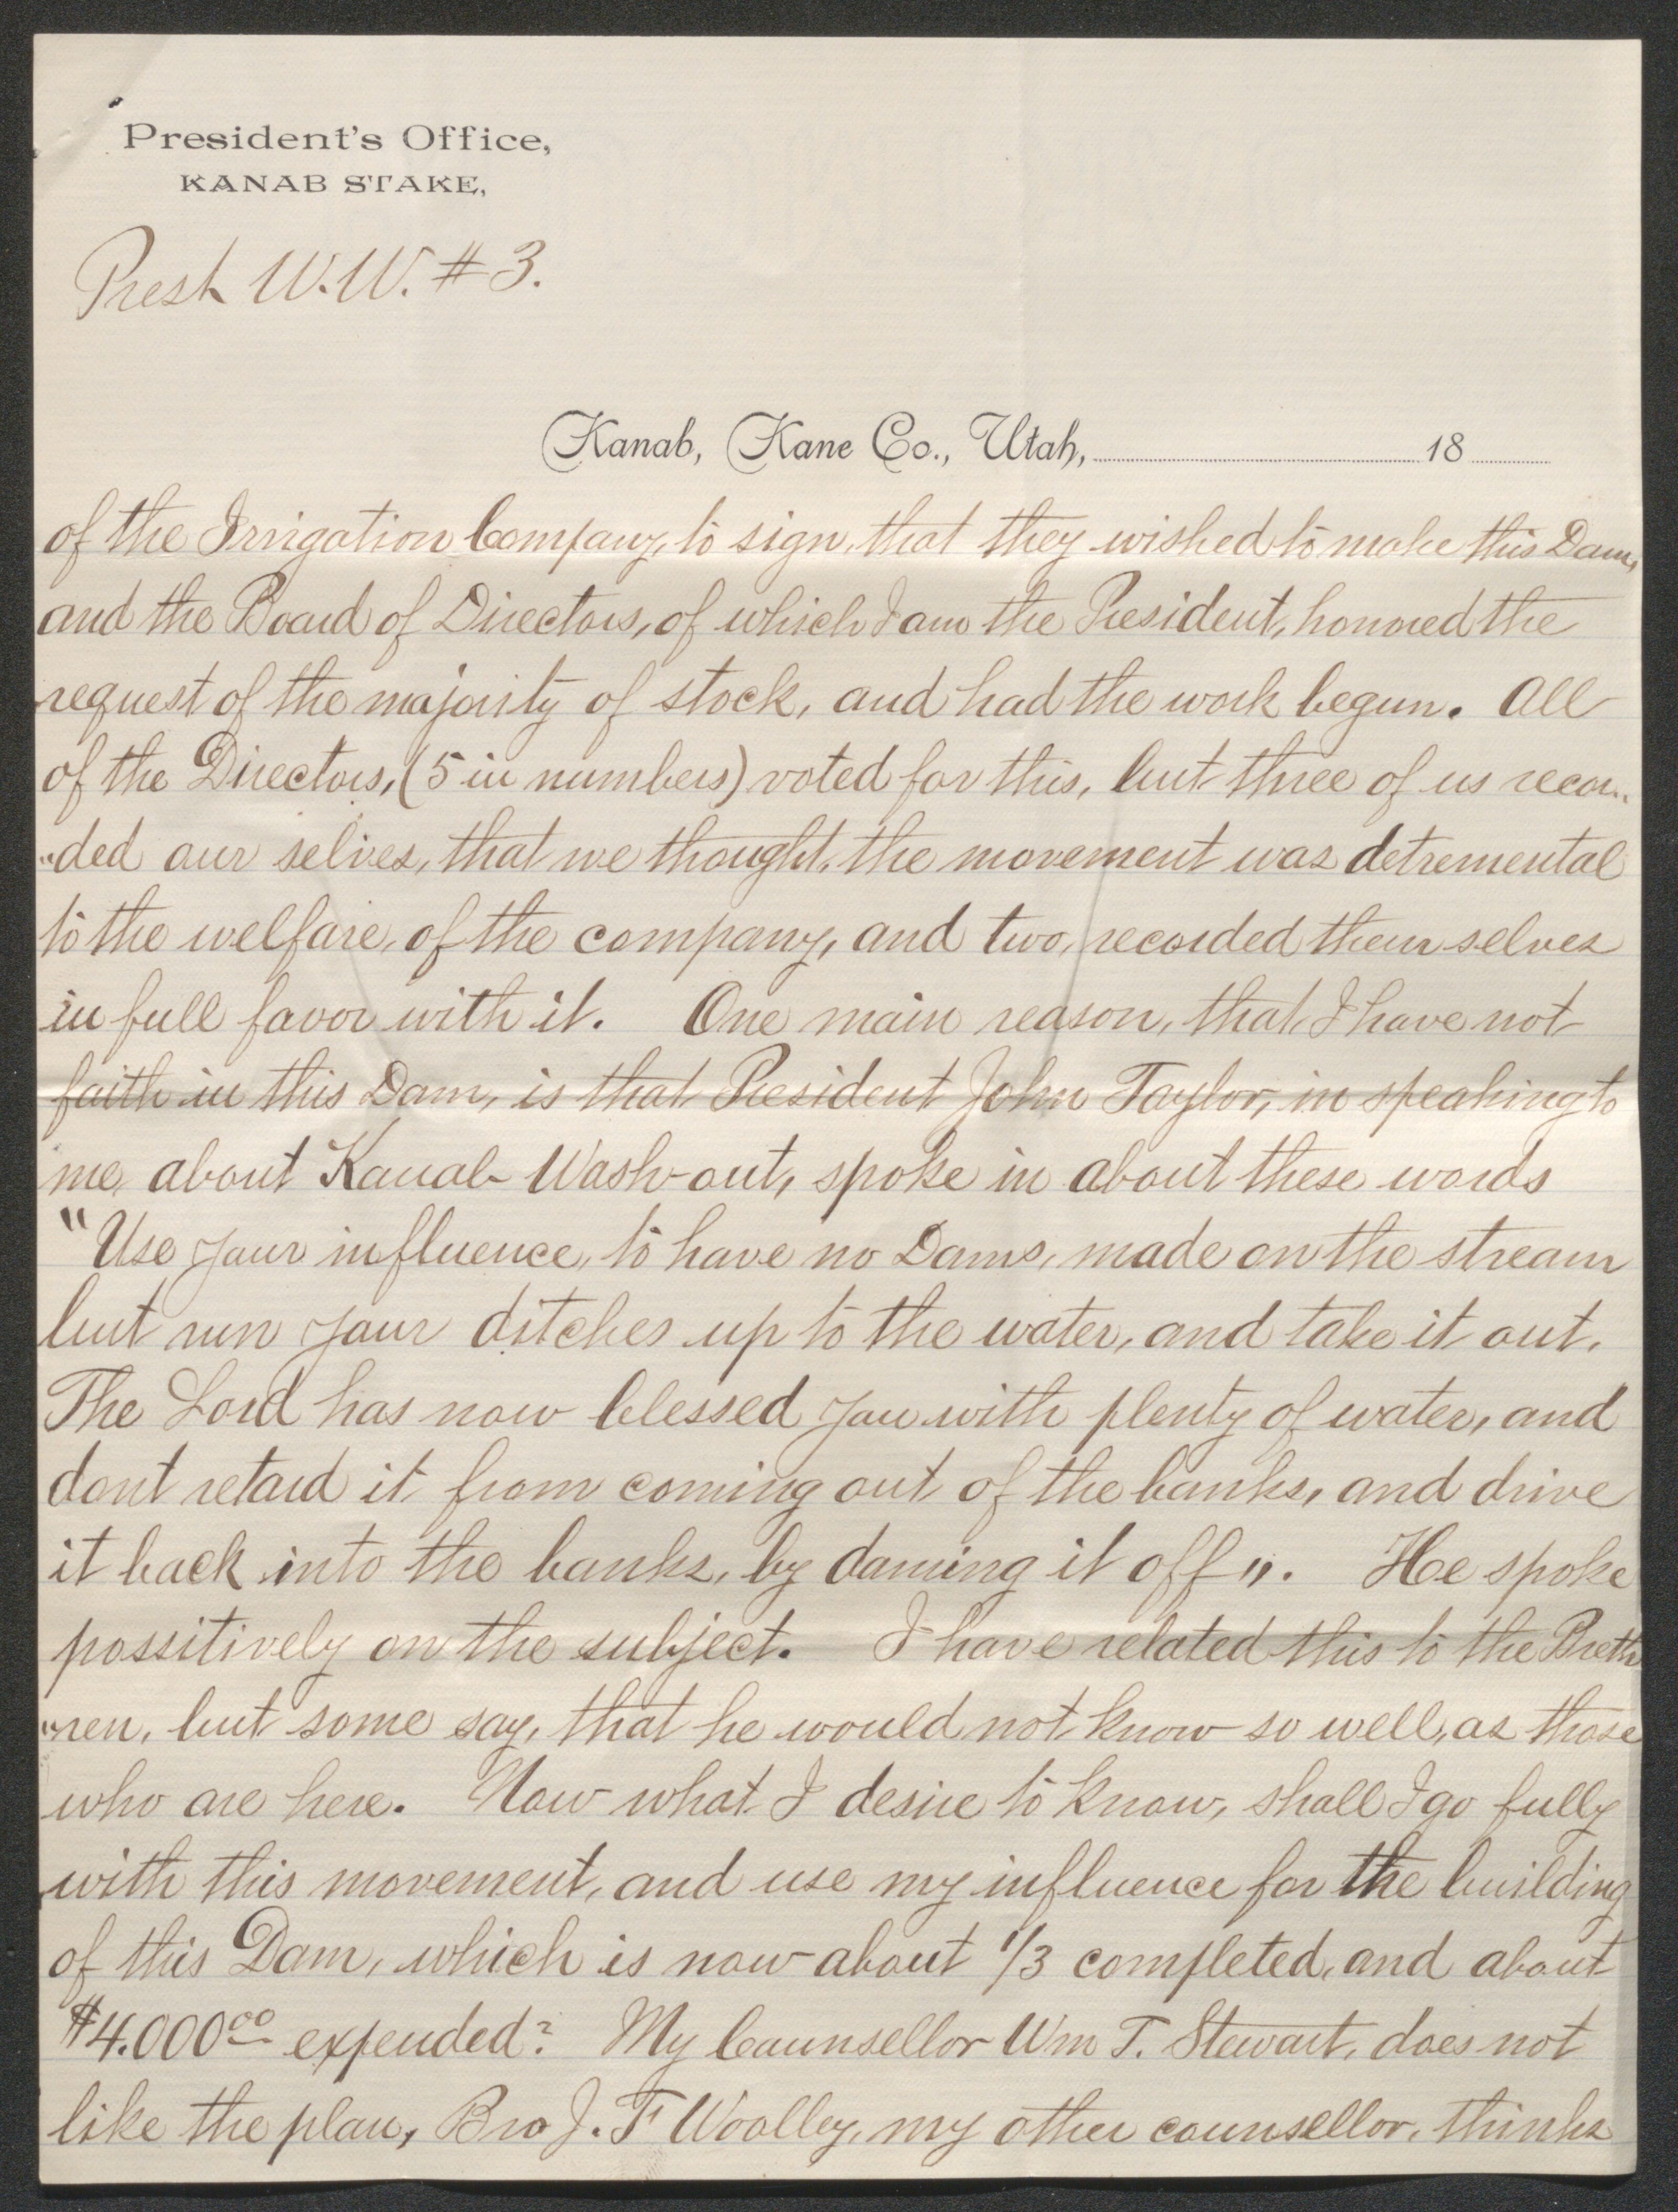 President's Office,
KANAB STAKE,
Prest W.W. # 3.
Kanab, Kane Co., Utah, 18
of the Irrigation Company, to sign, that they wished to make this Dam,
and the Board of Directors, of which I am the President, honored the
request of the majority of stock, and had the work begun. All
of the Directors, (5 in numbers) voted for this, but three of us recor..
"ded our selves, that we thought, the movement was detremental
to the welfare, of the company, and two, recorded them selves
in full favor with it. One main reason, that I have not
faith in this Dam, is that President John Taylor, in speaking to
me, about Kanab Wash-out, spoke in about these words
"Use your influence, to have no Dams, made on the stream
but run your ditches up to the water, and take it out.
The Lord has now blessed you with plenty of water, and
dont retard it from coming out of the banks, and drive
it back into the banks, by daming it off". He spoke
possitively on the subject. I have related this to the Breth
"ren, but some say, that he would not know so well, as those
who are here. Now what I desire to know, shall I go fully
with this movement, and use my influence for the building
of this Dam, which is now about 1/3 completed, and about
$4.000.00 expended? My Counsellor Wm T. Stewart, does not
like the plan, Bro J. F Woolley, my other counsellor, thinks